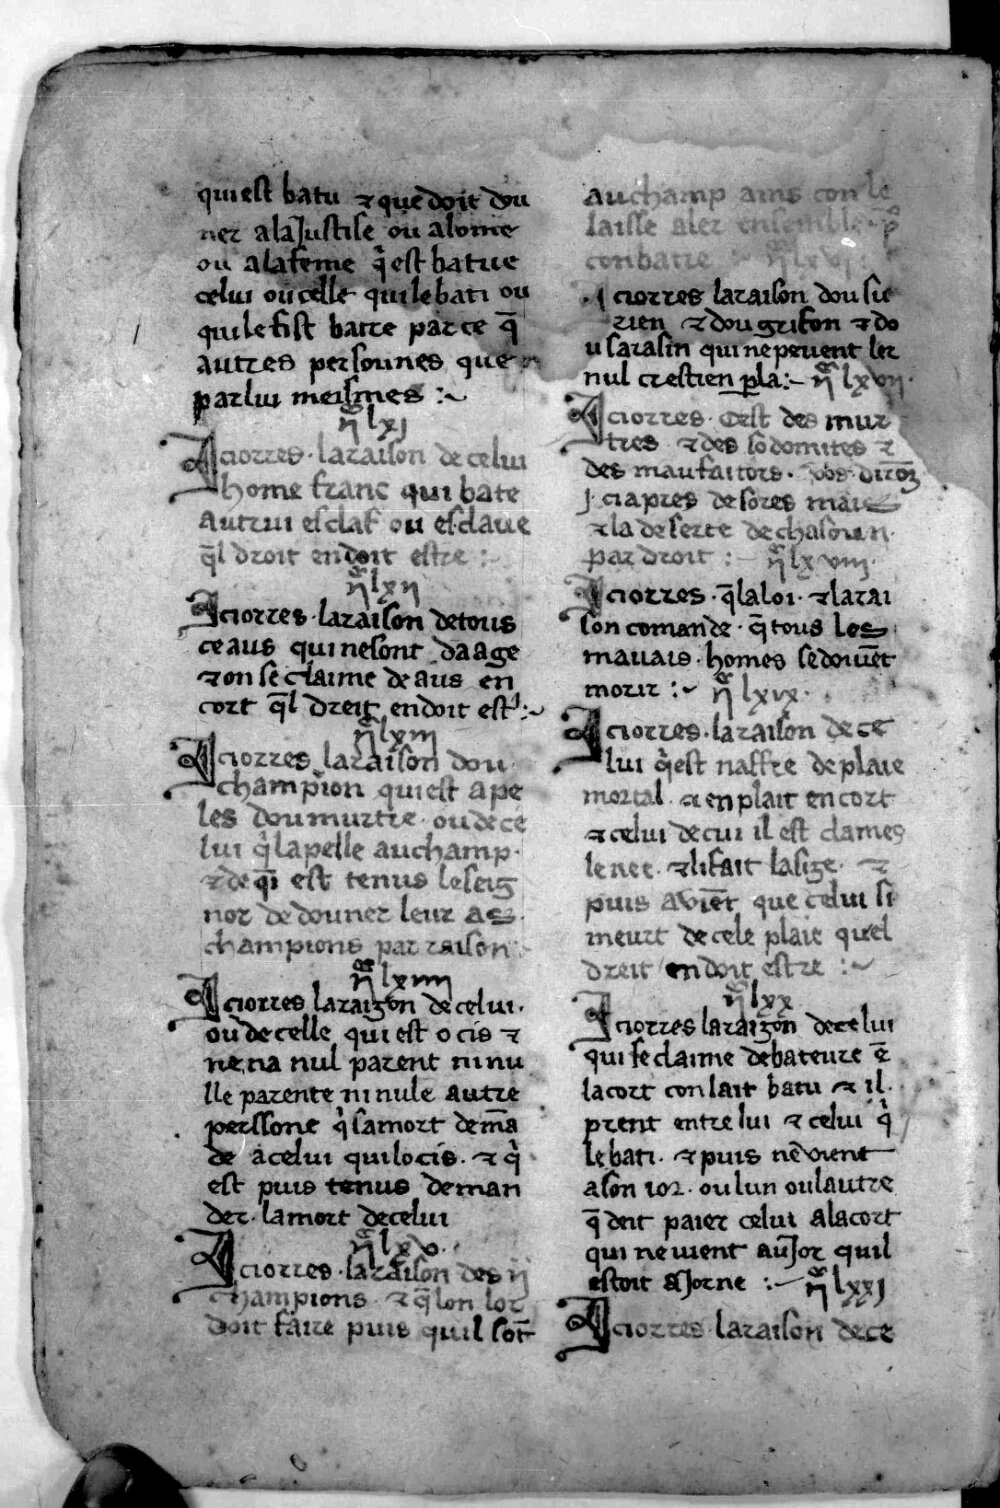 qui est batu ⁊ que doit dou
ner ala Justise ou alome
ou alafeme q̇ est batue
celui ou celle qui le bati ou
qui le fist batre par ce q̄
autres persounes que
par lui meismes :~
lxj
A ciorres · laraison de celui
home franc qui bate
autrui esclaf ou esclaue
q̄l droit en doit estre :
lxij
I ciorres · laraison de tous
ceaus qui ne sont daage
⁊ on se claime de aus en
cort q̄l dreit en doit est :~
lxiij
A ciorres laraison dou
champion qui est ape
les dou murtre · ou de ce
lui q̇ lapelle au champ ·
⁊ de q̄i est tenus le seig
nor de douner leur as ·
champions par raison
lxiiij
A ciorres laraizon de celui ·
ou de celle qui est ocis ⁊
ne na nul parent ni nu
lle parente ni nule autre
perssone q̇ sa mort demā
de a celui qui locis · ⁊ q̇
est puis tenus deman
der · la mort de celui
lxv ·
A ciorres · laraison des ij
champions · ⁊ q̄ lon lor
doit faire puis quil sōt
au champ ains con le
laisse aler ensemble p̄
conbatre lxvi
A ciorres laraison dou su
rien ⁊ dou grifon ⁊ do
u sarasin qui ne peuent ler
nul crestien p̲la :~ lxvij ·
A ciorres · Cest des mur
tres · ⁊ des sodomites ⁊
des maufaitors · vos dirōz
j · ci apres de sores mais
⁊ la deserte de chascun ·
par droit : ~ lxviij ·
A ciorres · q̄ la loi · ⁊ larai
son comande · q̄ tous les
mauais · homes se doiuēt
morir :~ lxix ·
A ciorres · laraison de ce
lui q̇ est naffre de plaie
mortal · ⁊ en plait en cort
⁊ celui de cui il est clames
le nee · ⁊ li fait lasige · ⁊
puis auiēt que celui si
meurt de cele plaie quel
dreit en doit estre :~
lxx
A ciorres laraizon de celui
qui se claime de bateure ē
la cort con lait batu ⁊ il ·
prent entre lui ⁊ celui q̇
le bati · ⁊ puis ne vient
a son ior · ou lun ou lautre
q̄ deit paier celui a la cort
qui ne uient au Jor quil
estoit aJorne :~ lxxj
A ciorres · laraison de ce